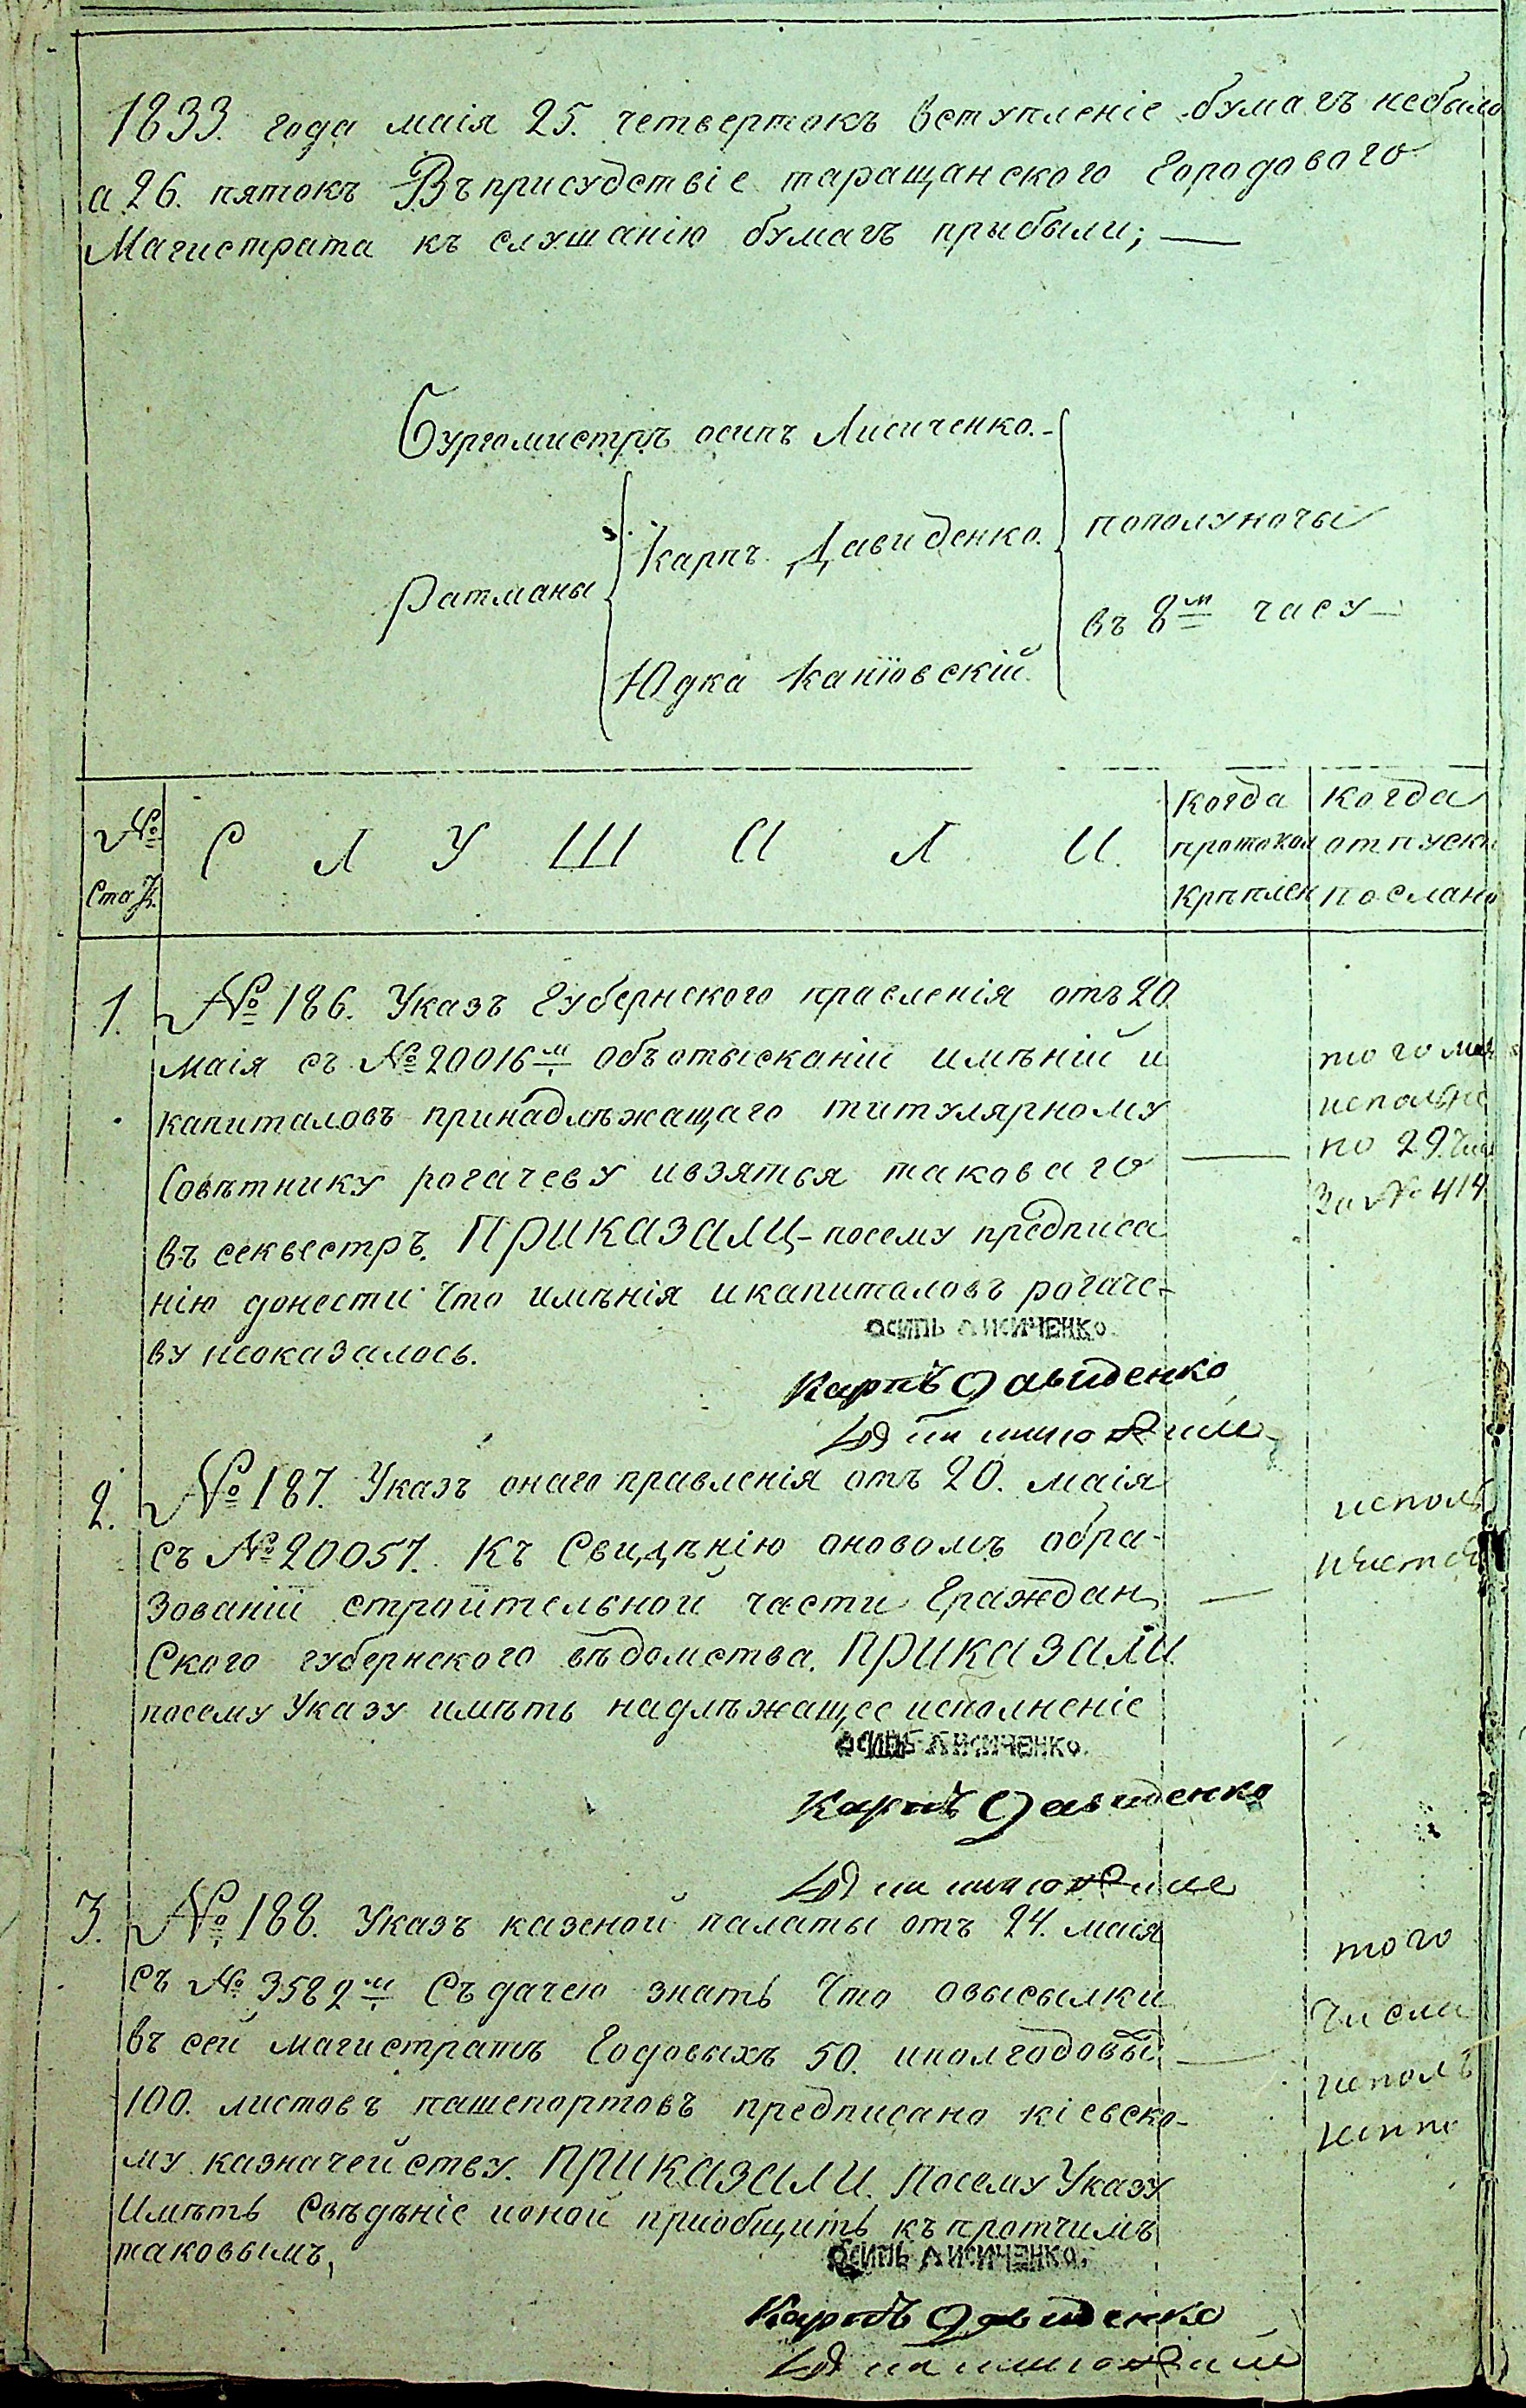 1833. года маія 25. четвертокъ вступленіе бумагъ небыло
а 26. пятокъ Въприсудствіе таращанского Городового
Магистрата къ слушанію бумагъ прыбыли;
Бургомистръ осипъ Лисиченко.
Ратманы
Карпъ Давиденко.
Юдка Каніовскій.
пополуночы
въ 8м часу
№
Ста҃т.
СЛУШАЛИ.
Когда
протокол
Крѣплен
когда
отпускъ
послано
1. № 186. Указъ Губернского правленія отъ 20
маія съ № 20016м объотысканіи имѣній и
капиталовъ принадлѣжащаго титулярному
Совѣтнику рогачеву ивзятья таковаго
въ секвестръ. ПРИКАЗАЛИ посему предписа
нію донести Что имѣнія икапиталовъ рогаче-
ву неоказалось.
того мая
исполне
по 29. Чис
За № 414
ОСИПЬ ЛИСИЧЕНКО.
Карпъ Давиденко
2. № 187. Указъ онаго правленія отъ 20. маія
съ № 20057. Къ Свидѣнію оновомъ обра-
Зованіи строительной части Граждан
Ского губернского вѣдомства. ПРИКАЗАЛИ
посему Указу имѣть надлѣжащее исполненіе
исполь
ОСИПЬ ЛИСИЧЕНКО.
Карпъ Давиденко
3. № 188. Указъ казеной палаты отъ 24. маія
съ № 3582м Съдачею знать Что овысылки
въ сей магистратъ Годовыхъ 50. иполгодовы
100. листовъ пашепортовъ предписано кіевско-
му казначейству. ПРИКАЗАЛИ. Посему Указу
Имѣть Свѣдѣніе ионой приобщить къпротчимъ
таковымъ,
того
Числа
исполь
ОСИПЬ ЛИСИЧЕНКО.
Карпъ Давиденко